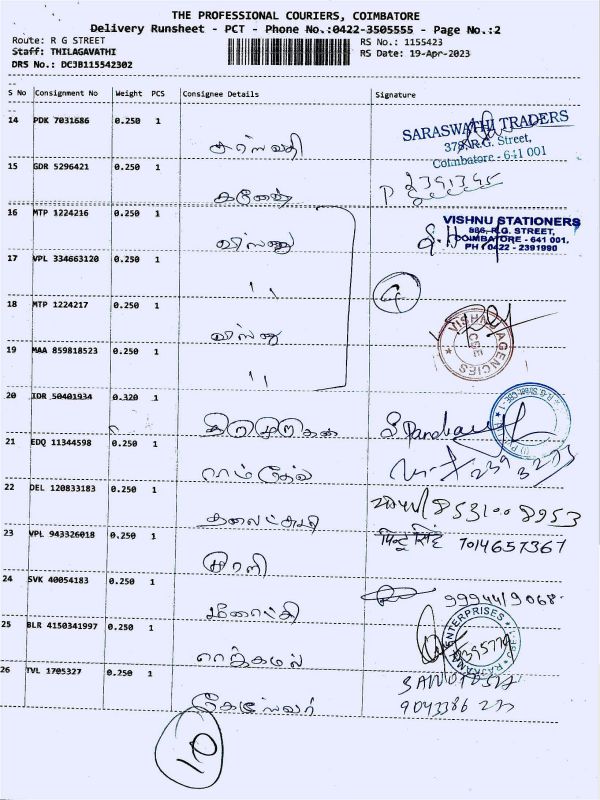 THE PROFESSIONAL COURIERS, COIMBATORE
Delivery Runsheet - PCT - Phone No.:0422-3505555 - Page No.:2
Route: R G STREET
RS No.: 1155423
Staff: THILAGAVATHI
RS Date: 19-Apr-2023
DRS No.: DCJB115542302
S No Consignment No Weight PCS Consignee Details Signature
14 PDK 7031686 0.250 1
SARASWATHI TRADERS
378, R.G. Street,
Coimbatore - 641 001
சரஸ்வதி
15 GDR 5296421 0.250 1
கணேஷ்
P 2391395
16 MTP 1224216 0.250 1
VISHNU STATIONERS
886, R.G. STREET,
COIMBATORE - 641 001.
PH : 0422 - 2391990
விஸ்ணு
17 VPL 334663120 0.250 1
11
4
18 MTP 1224217 0.250 1
VISHNU AGENCIES
CBE
விஸ்ணு
19 MAA 859818523 0.250 1
11
20 IDR 50401934 0.320 1
R.G. Street, CBE - 1
21 EDQ 11344598 0.250 1
22 DEL 120833183 0.250 1
8531008953
23 VPL 943326018 0.250 1
முரளி
7014657367
24 SVK 40054183 0.250 1
மீனாட்சி
25 BLR 4150341997 0.250 1
ENTERPRISES
ராஜ்கமல்
26 TVL 1705327 0.250 1
10